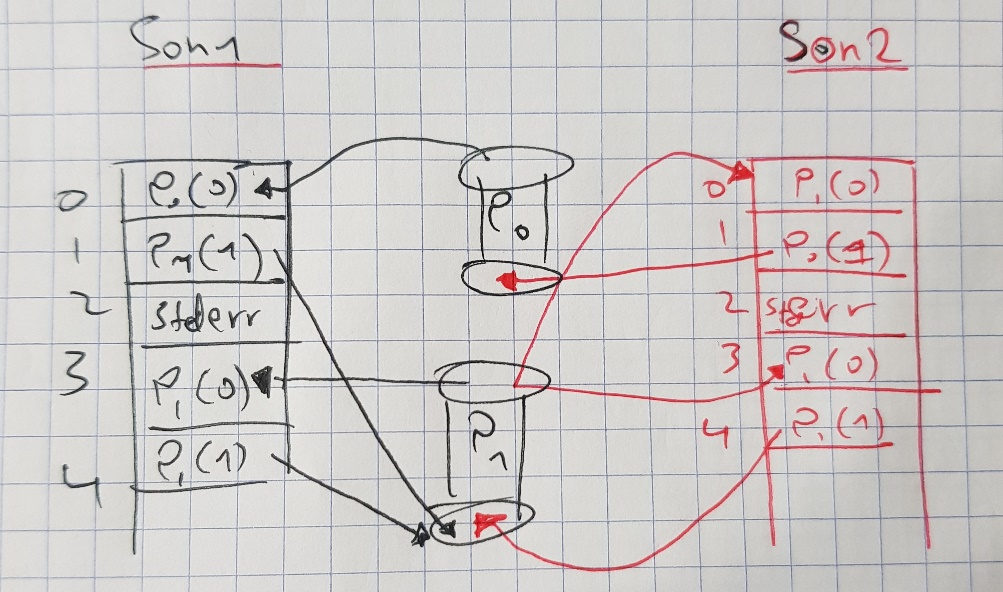 Son1
Son2
0 P0(0)
1 P1(1)
2 stderr
3 P1(0)
4 P1(1)
P0
P1
0 P1(0)
1 P0(1)
2 stderr
3 P1(0)
4 P1(1)